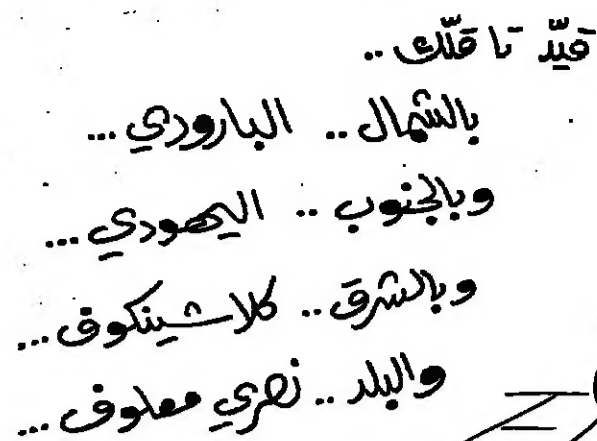 قيّد تا قلّك ..
بالشمال .. البارودي ...
وبالجنوب .. اليهودي ...
وبالشرق .. كلاشينكوف ...
والبلد .. نصري معلوف ...